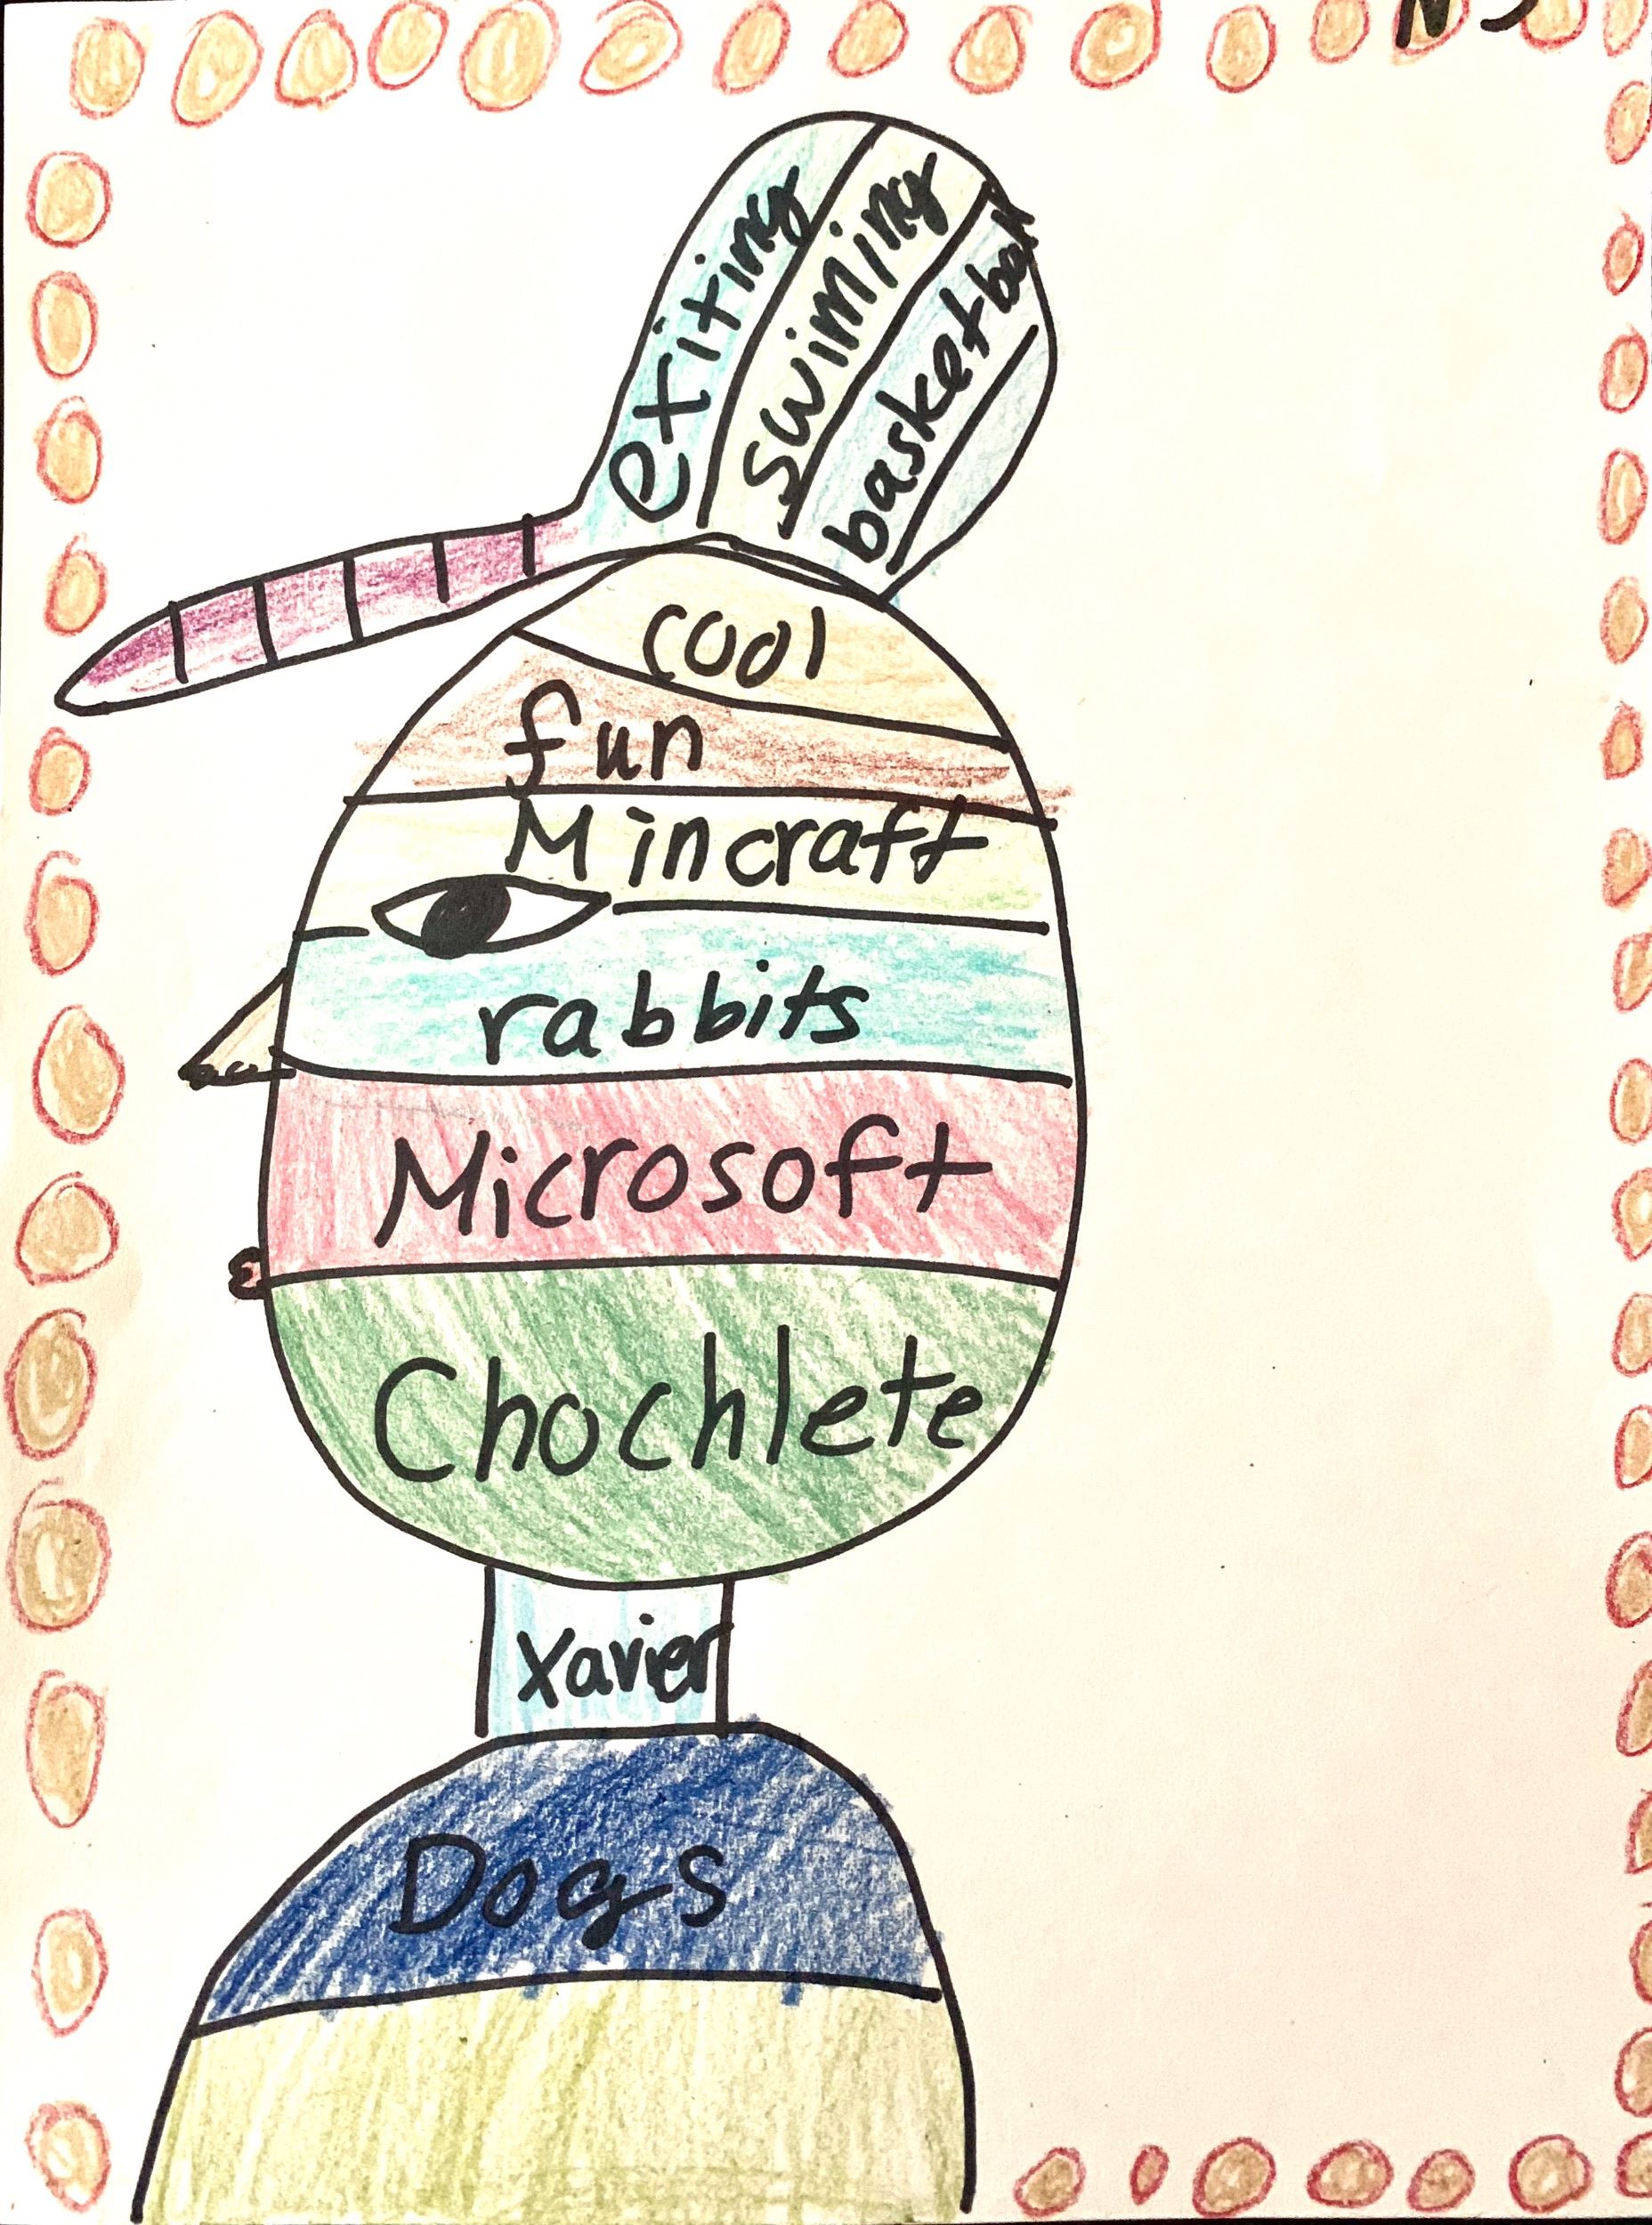 exiting
swiming
basketball
cool
fun
Mincraft
rabbits
Microsoft
Chochlete
Xavier
Dogs